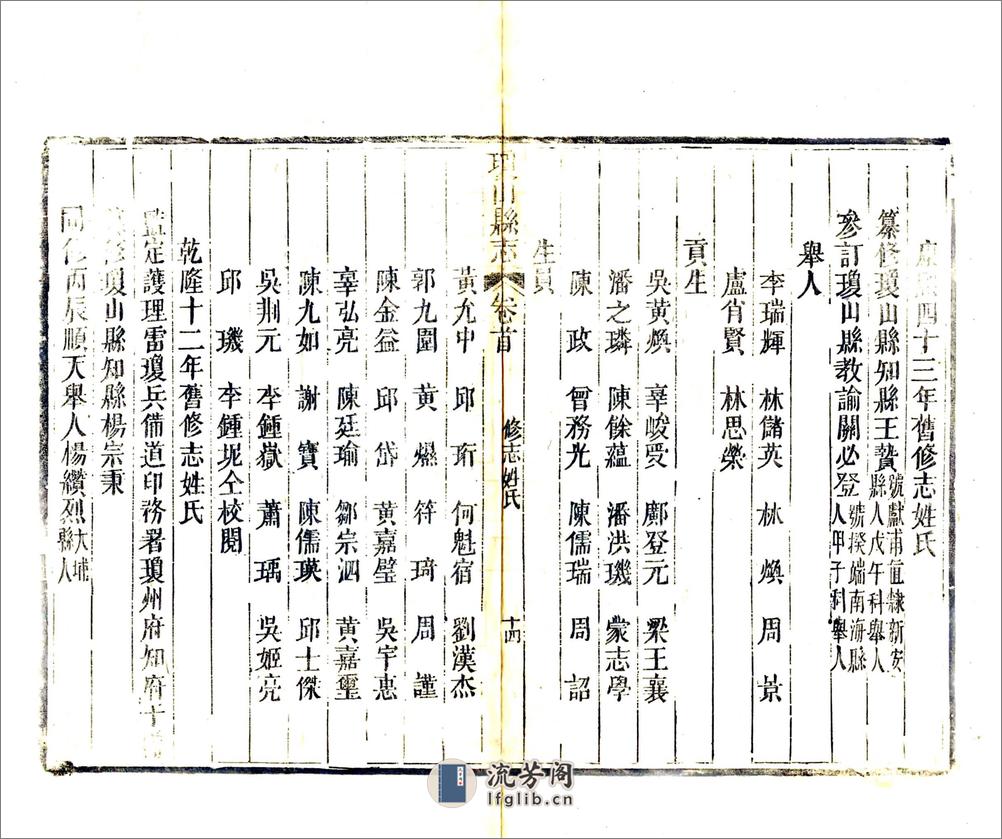 康熙四十三年舊修志姓氏
纂修瓊山縣知縣王贄號獻甫直隸新安縣人戊午科舉人
參訂瓊山縣教諭關必登號揆端南海縣人甲子科舉人
舉人
李瑞輝 林儲英 林煥 周景
盧肖賢 林思榮
貢生
吳黃煥 辜峻受 鄺登元 梁王襄
潘之璘 陳餘蘊 潘洪璣 蒙志學
陳政 曾務光 陳儒瑞 周詔
生員
瓊山縣志 卷首 修志姓氏 十四
黃允中 邱珩 何魁宿 劉漢杰
郭九圍 黃爃 符琦 周謹
陳金益 邱岱 黃嘉璧 吳宇惠
辜弘亮 陳廷瑜 鄒宗泗 黃嘉璽
陳九如 謝寶 陳儒瑛 邱士傑
吳荆元 李鍾嶽 蕭瑀 吳姬亮
邱璣 李鍾坭仝校閱
乾隆十二年舊修志姓氏
監定護理雷瓊兵備道印務署瓊州府知府于
修瓊山縣知縣楊宗秉
同修丙辰順天舉人楊纘烈大埔縣人
流芳阁
lfglib.cn